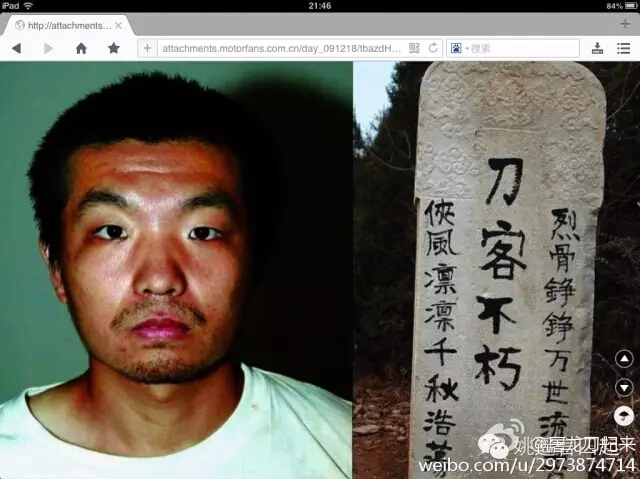 iPad 21:46 84%
http://attachments...
attachments.motorfans.com.cn/day_091218/tbazdH...
搜索
烈骨錚錚万世流
刀客不朽
俠風凛凛千秋浩
weibo.com/u/2973874714